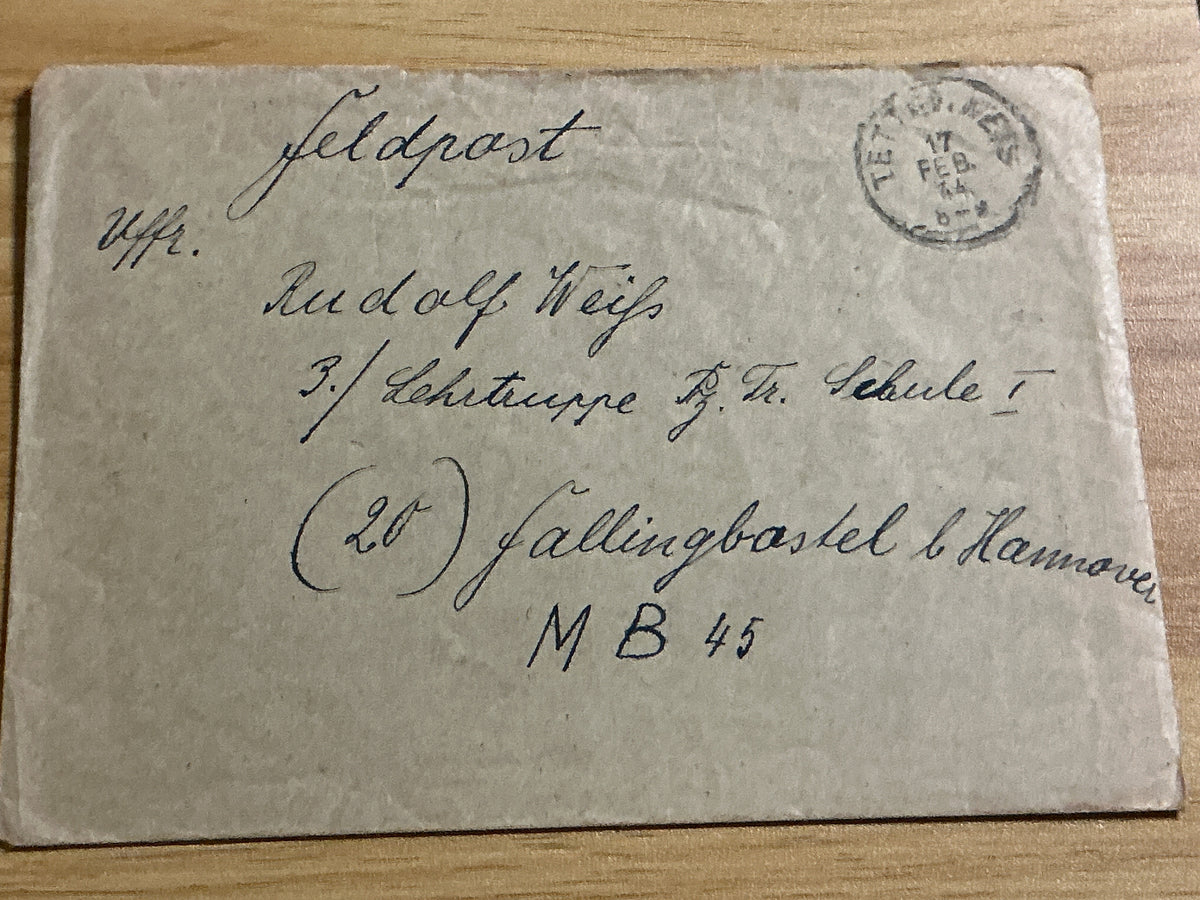 Feldpost
TETTENWEIS
17
FEB.
44
Uffz.
Rudolf Weiß
3./ Lehrtruppe Pz. Tr. Schule I
(20) Fallingbostel b Hannover
M B 45